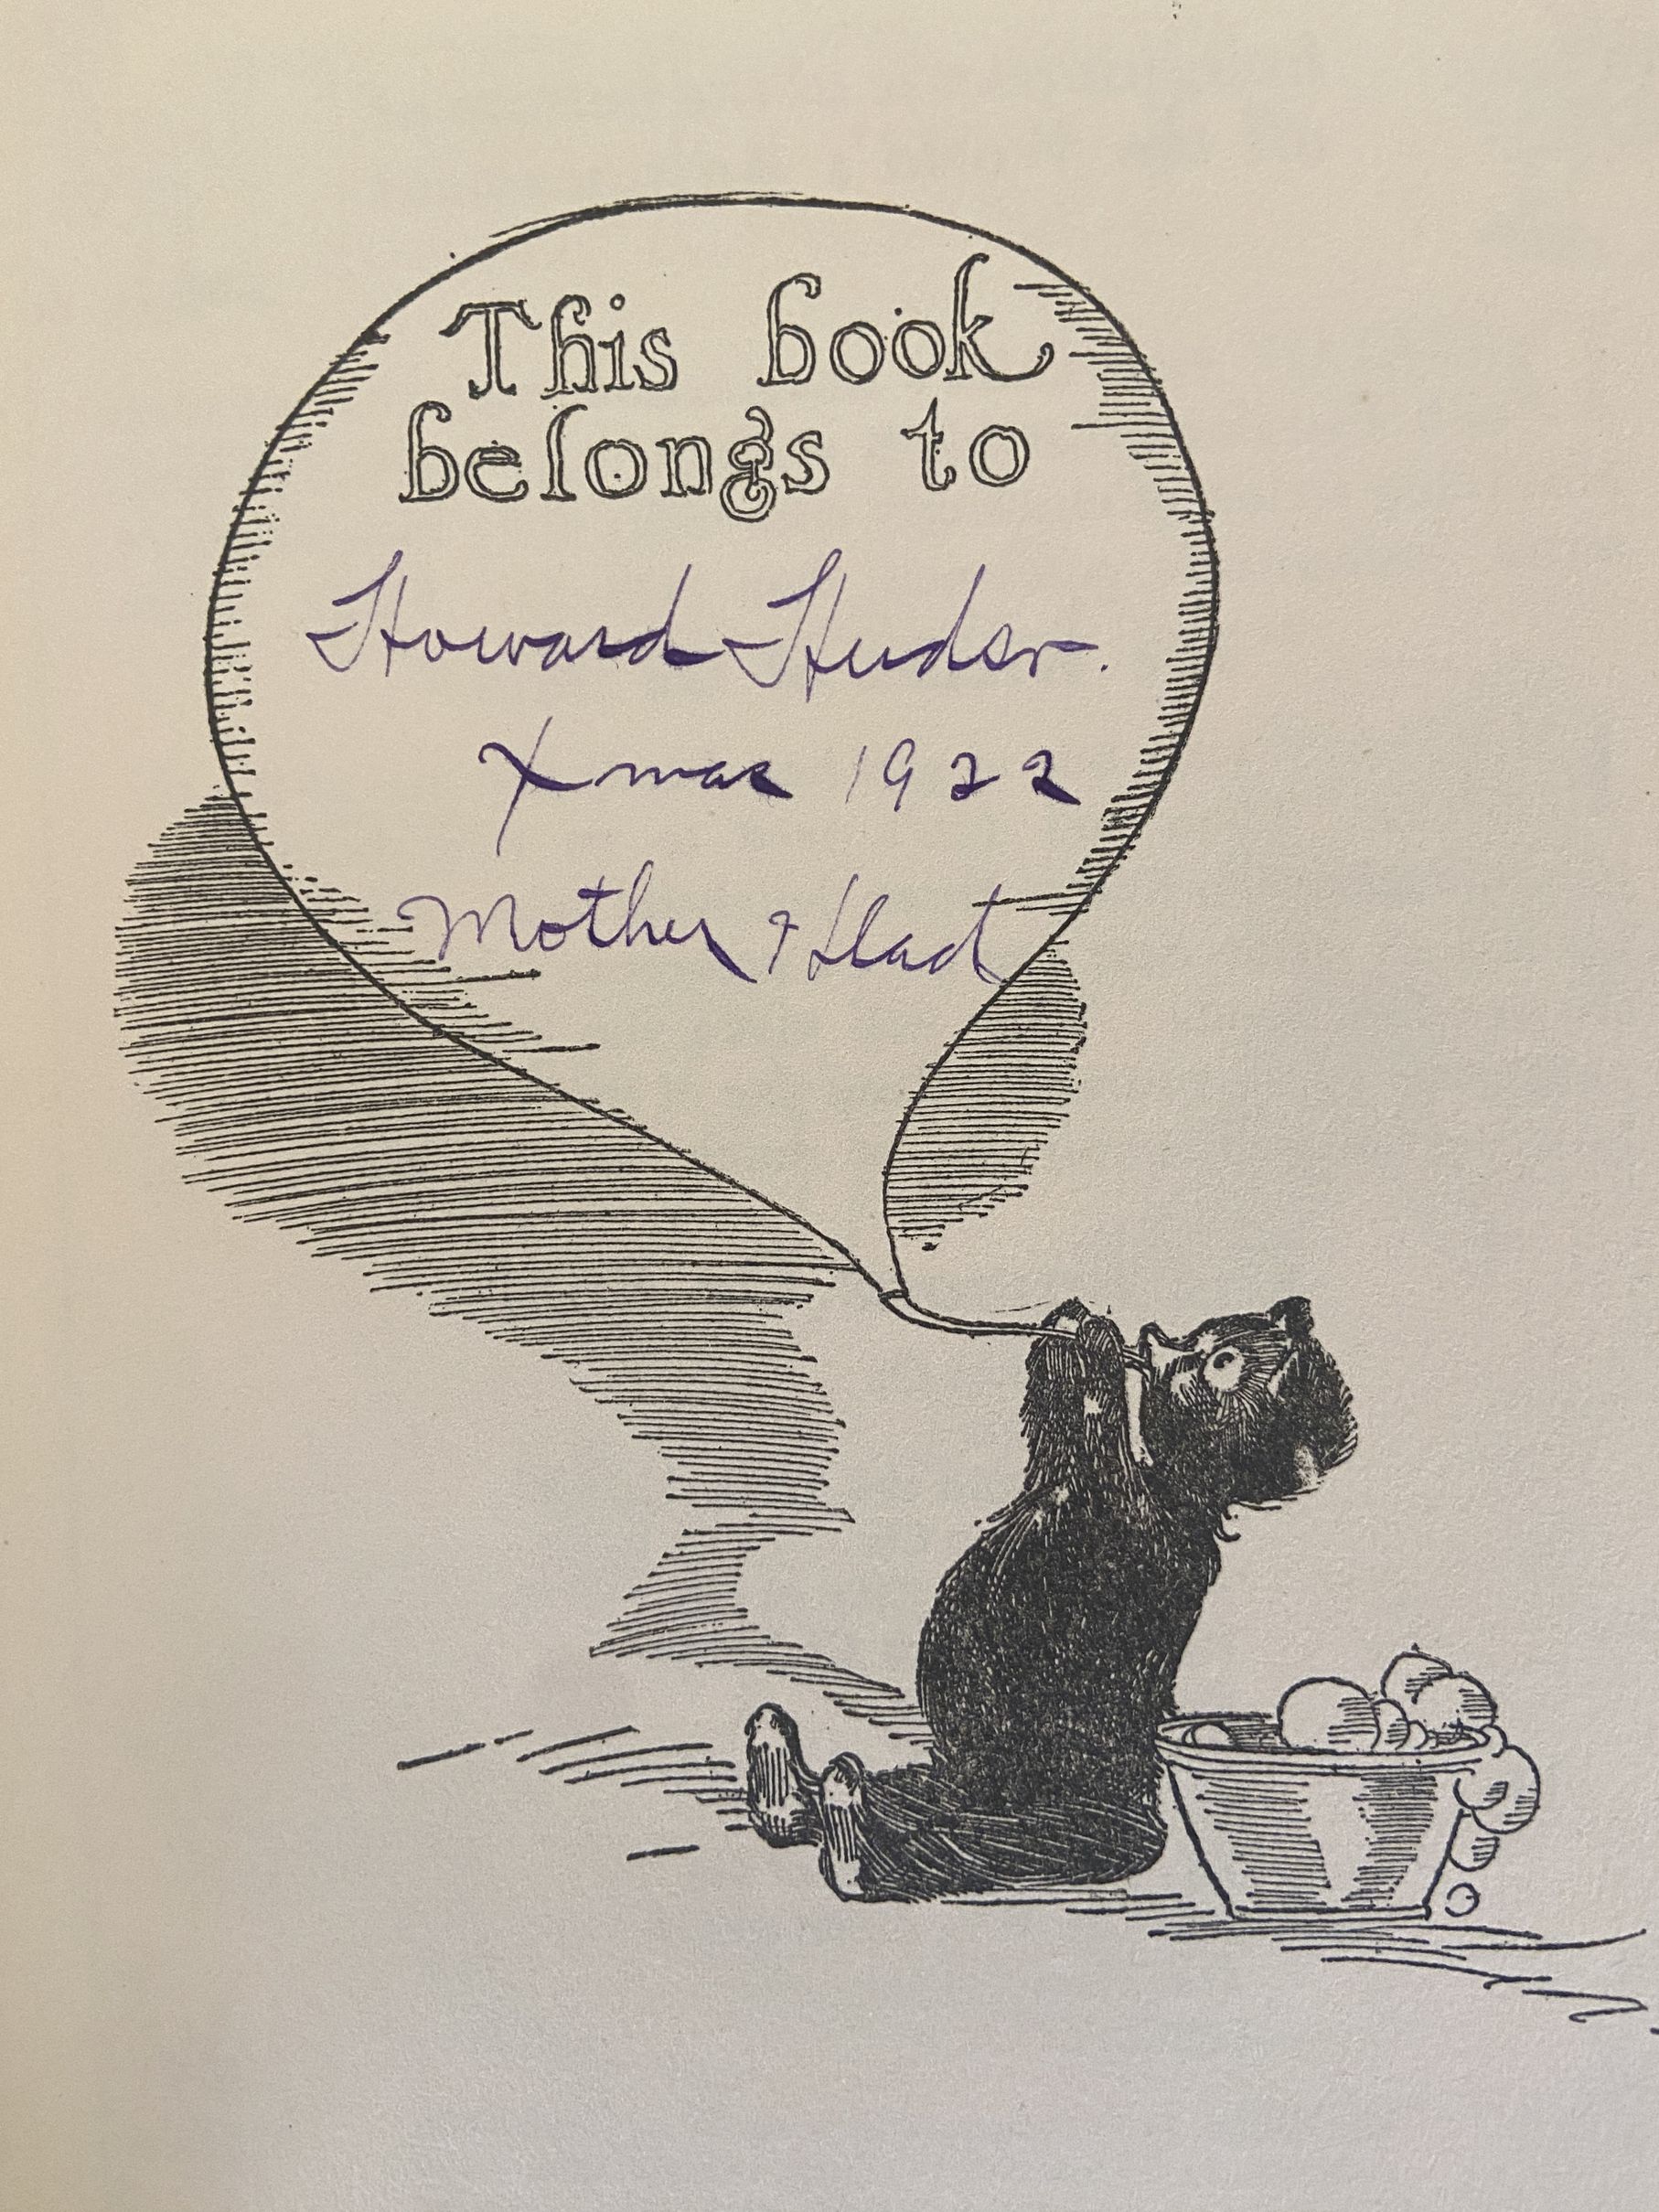 This book
belongs to
Howard Hudson.
Xmas 1922
Mother & Dad